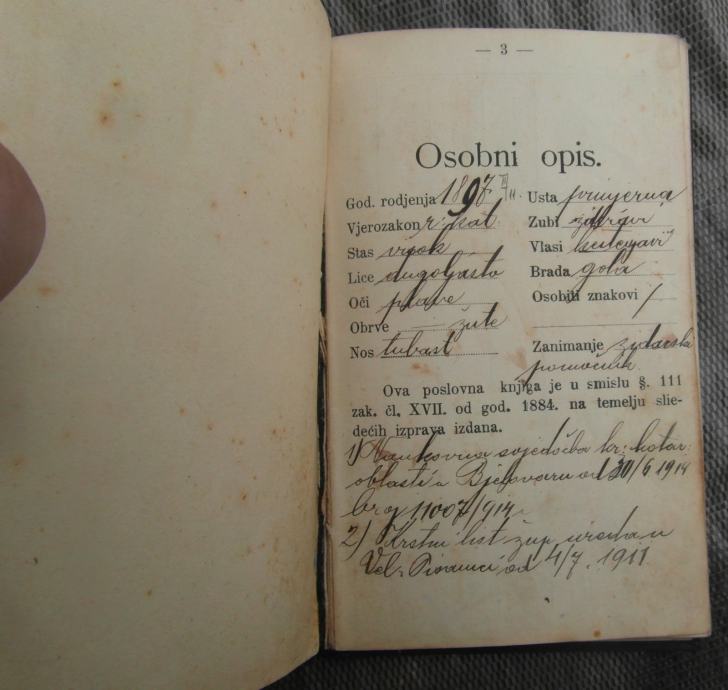 — 3 —
Osobni opis.
God. rodjenja 1897 Usta primjerna
Vjerozakon r. kat. Zubi zdravi
Stas visok Vlasi
Lice dugoljasto Brada gola
Oči plave Osobiti znakovi /
Obrve žute
Nos tubast Zanimanje zidarski
pomoćnik
Ova poslovna knjiga je u smislu §. 111
zak. čl. XVII. od god. 1884. na temelju slie-
dećih izprava izdana.
1) Naukovna svjedočba kr. kotar.
oblasti u Bjelovaru od 30/6 1914
broj 11007/914.
2) Krstni list žup. ureda u
Vel. Pisanici od 4/7. 1911